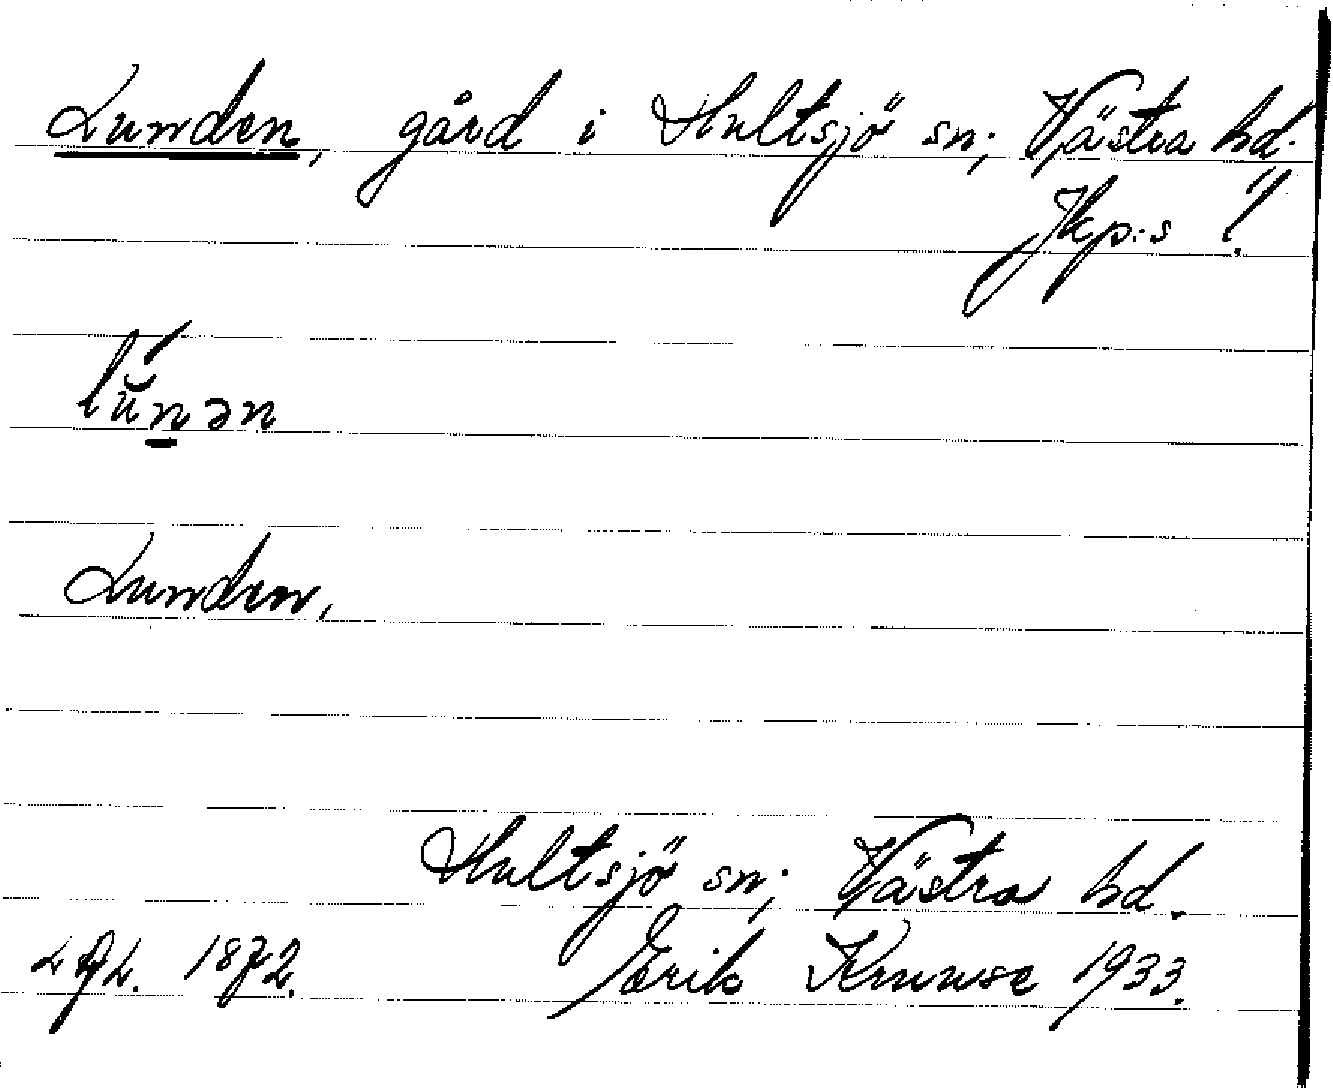 Lunden, gård i Hultsjö sn; Västra hd.
Jkp:s l.
lŭ́n̲ən
Lunden.
Hultsjö sn; Västra hd.
1872. Erik Kruuse 1933.